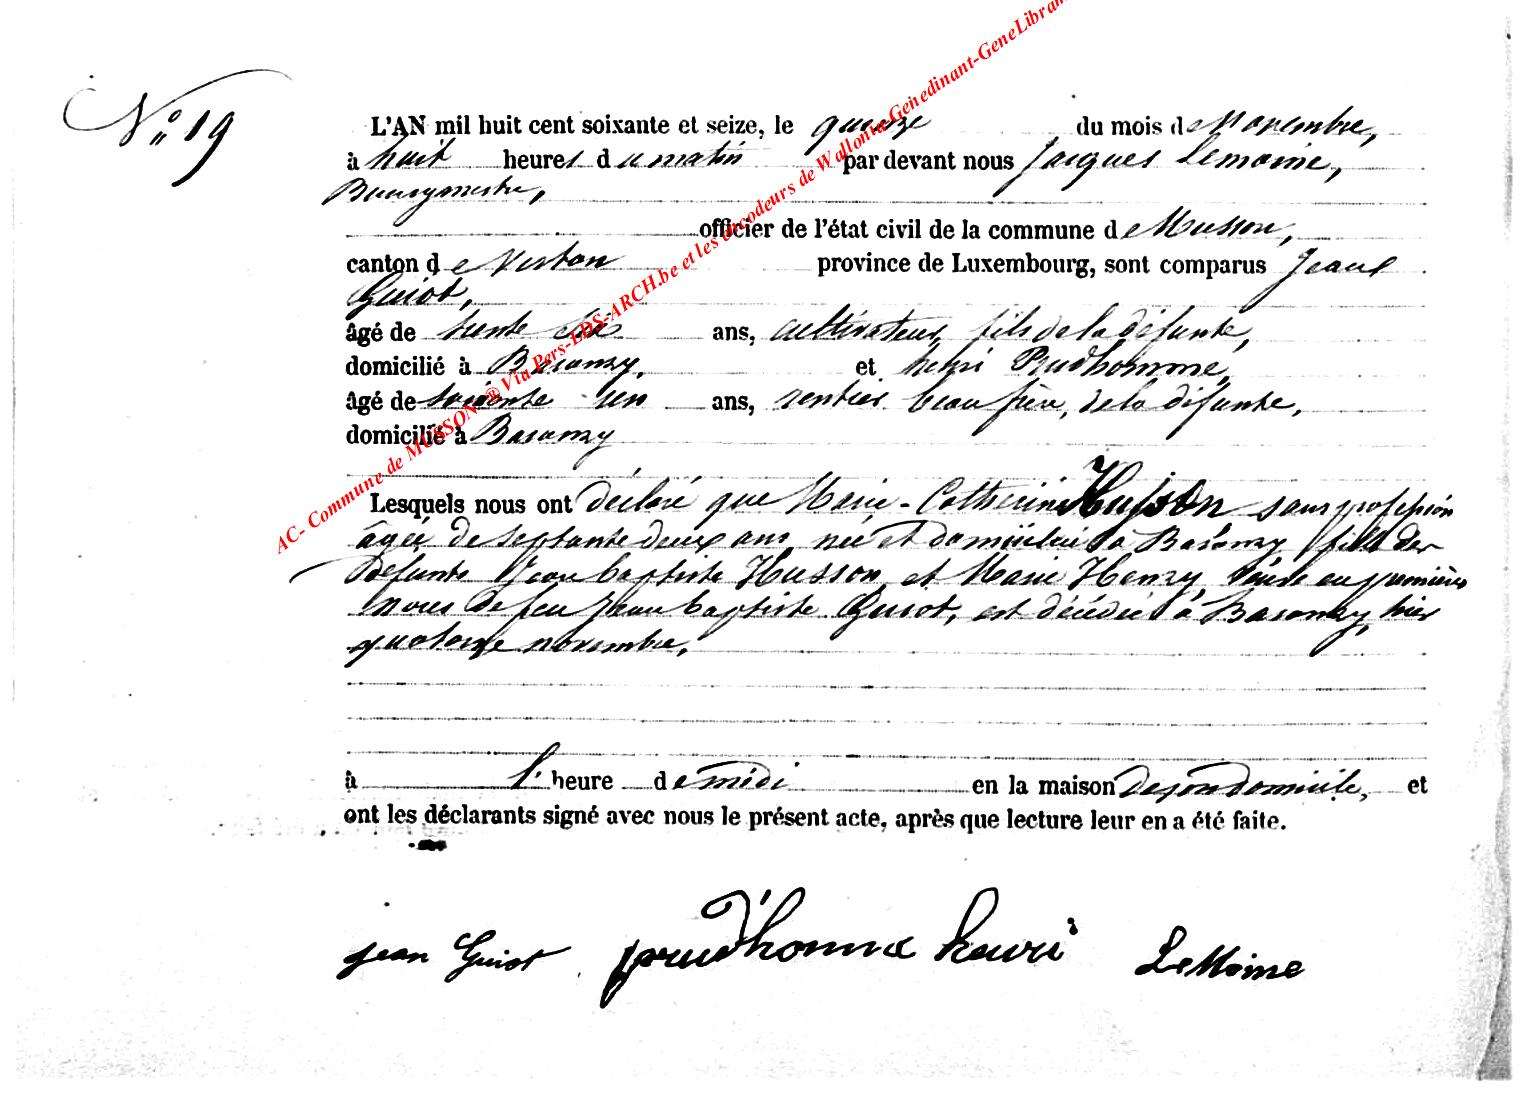 N° 19
L'AN mil huit cent soixante et seize, le quinze du mois de Novembre,
à huit heures du matin par devant nous Jacques Lemoine,
Bourgmestre,
officier de l'état civil de la commune de Musson,
canton de Virton province de Luxembourg, sont comparus Jean
Guiot,
âgé de trente ans, cultivateur, fils de la défunte,
domicilié à Baranzy, et henri Prudhomme,
âgé de soixante un ans, rentier beau frère, de la défunte,
domicilié à Baranzy
Lesquels nous ont déclaré que Marie-Catherine Husson sans profession
âgée de septante deux ans née et domiciliée à Baranzy, fille des
défunts Jean baptiste Husson et Marie Henry, Veuve en premières
noces de feu Jean baptiste Guiot, est décédée à Baranzy, hier
quatorze novembre,
à l'heure de midi en la maison de son domicile, et
ont les déclarants signé avec nous le présent acte, après que lecture leur en a été faite.
jean Guiot prud'homme henri LeMoine
AC- Commune de MUSSON ® Via Pers-LDS-ARCH.be et les encodeurs de Wallonia-Genedinant-GeneLibran